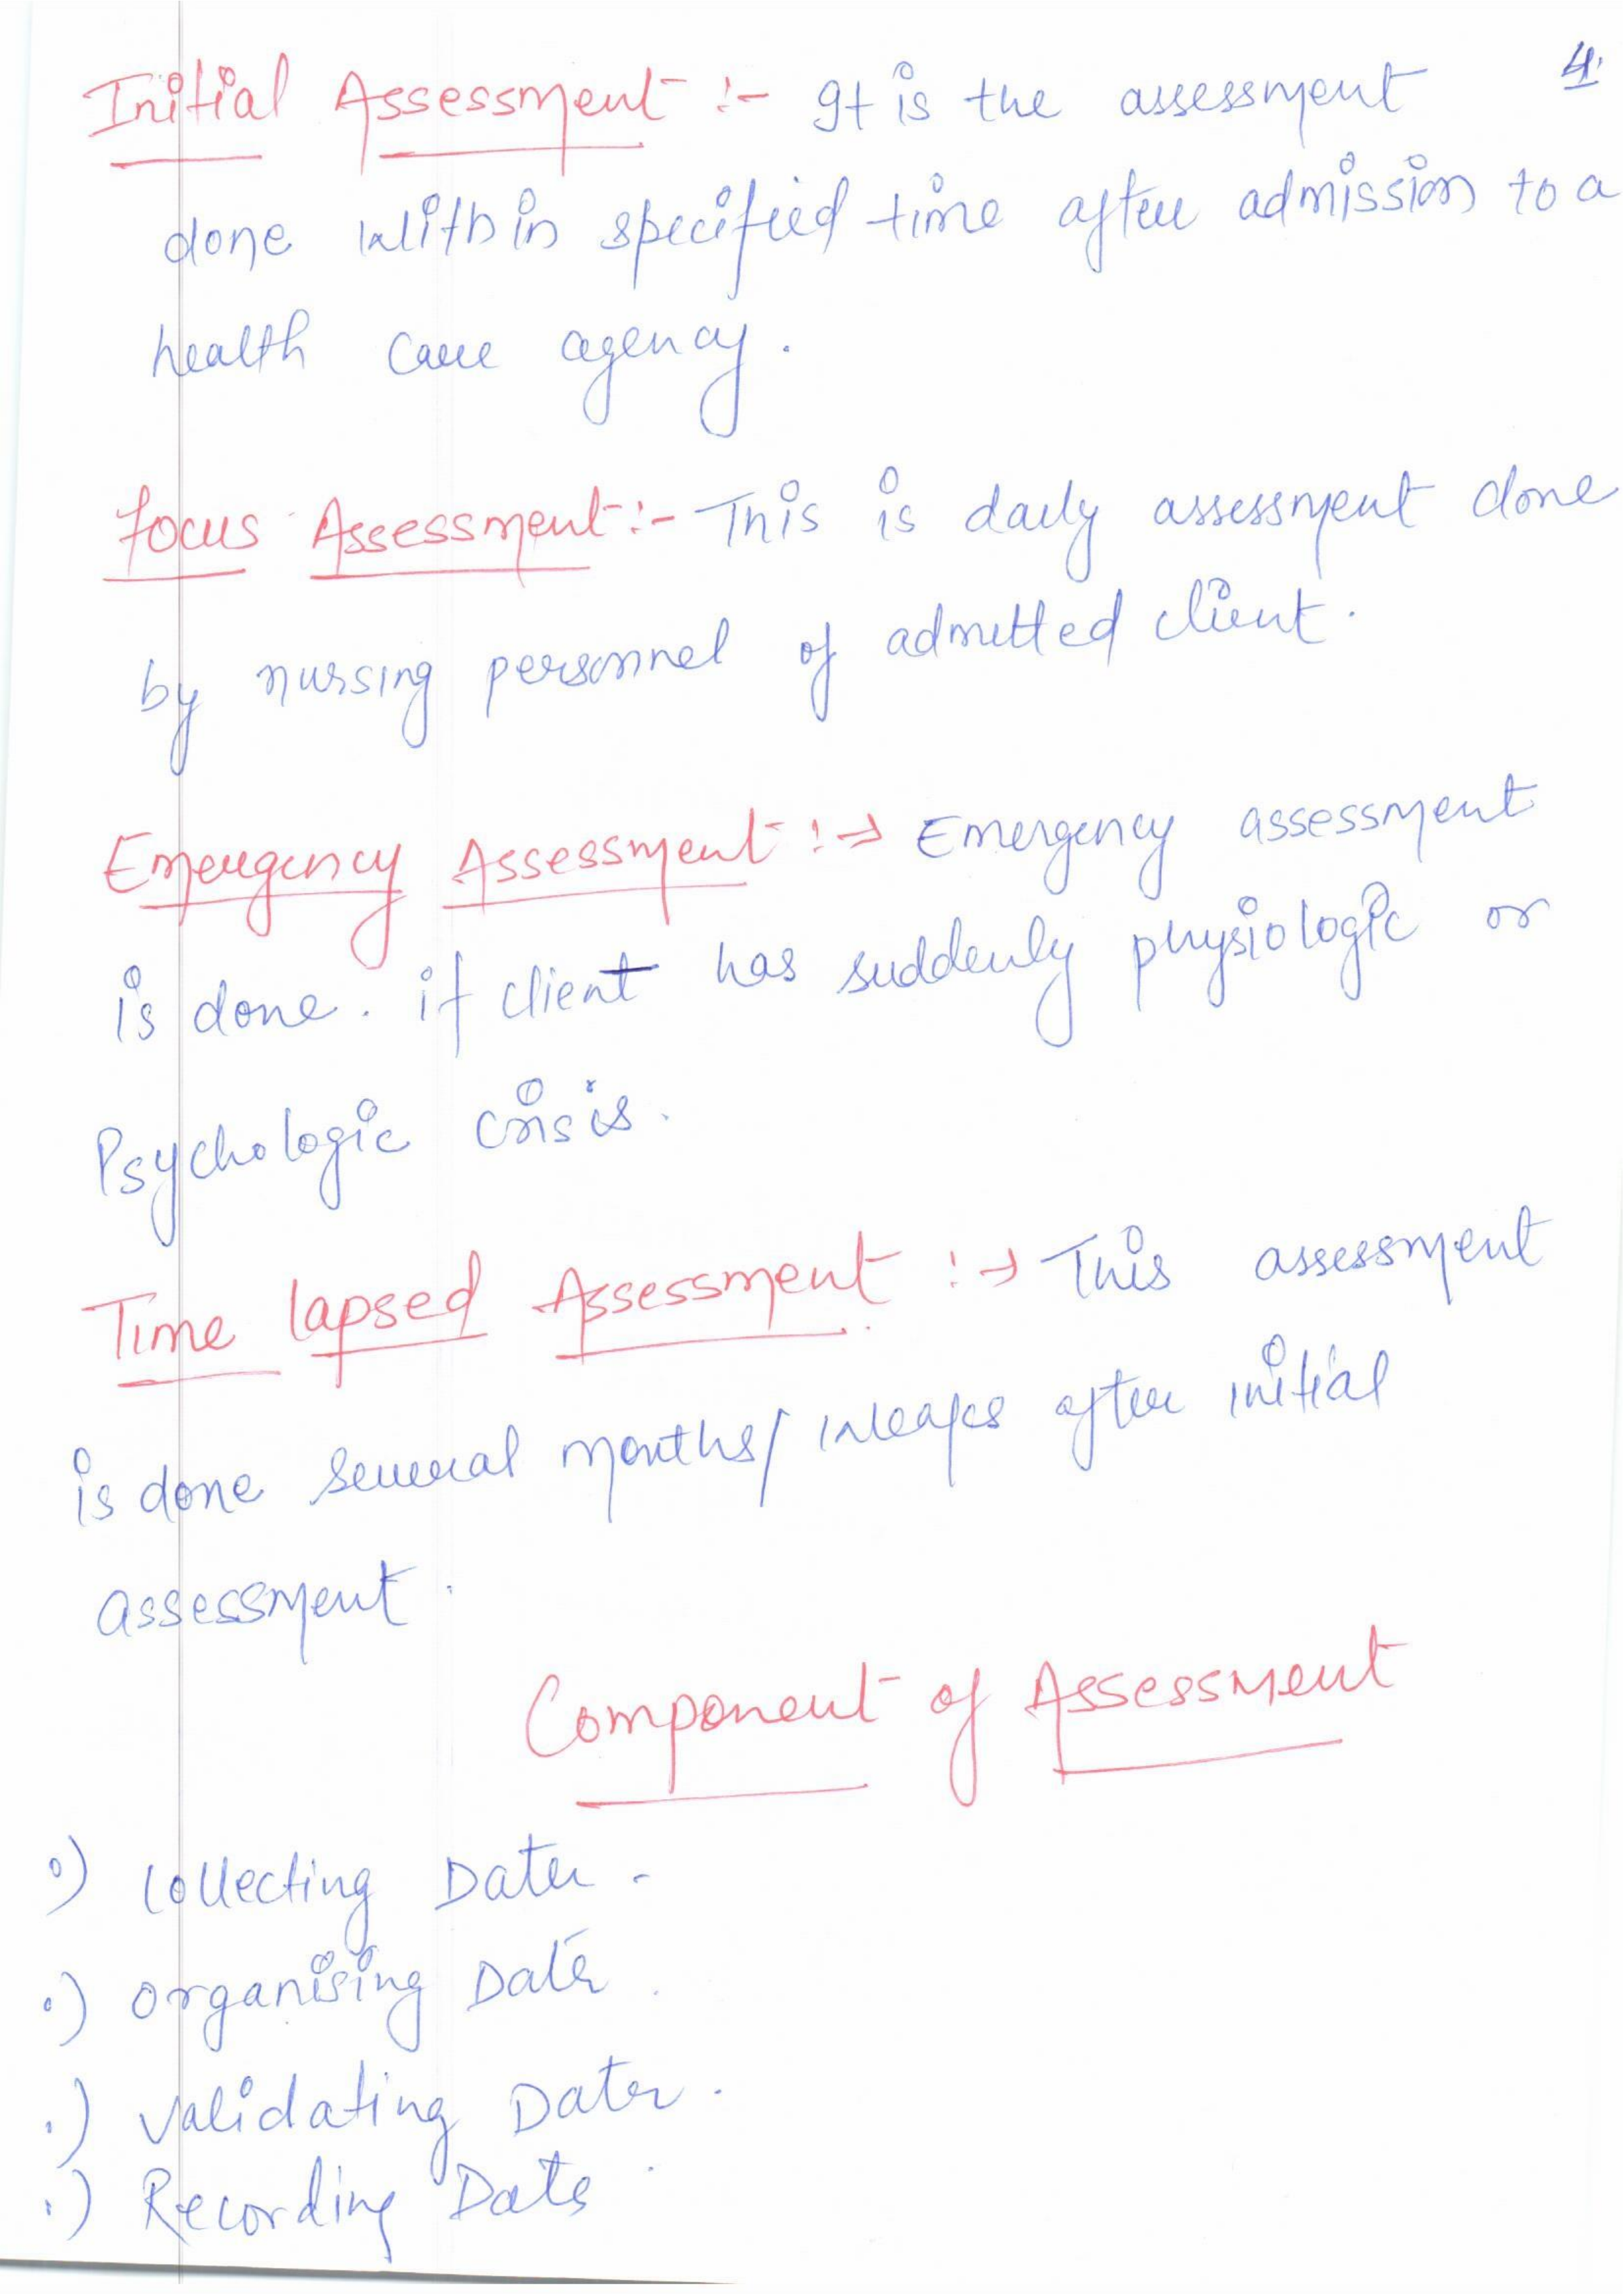 4.
Initial Assessment :- It is the assessment
done within specified time after admission to a
health care agency.
Focus Assessment :- This is daily assessment done
by nursing personnel of admitted client.
Emergency Assessment :→ Emergency assessment
is done. if client has suddenly physiologic or
Psychologic crisis.
Time lapsed Assessment :→ This assessment
is done several months/ weaks after initial
assessment.
Component of Assessment
•) Collecting Data.
•) Organising Data.
•) Validating Data.
•) Recording Data